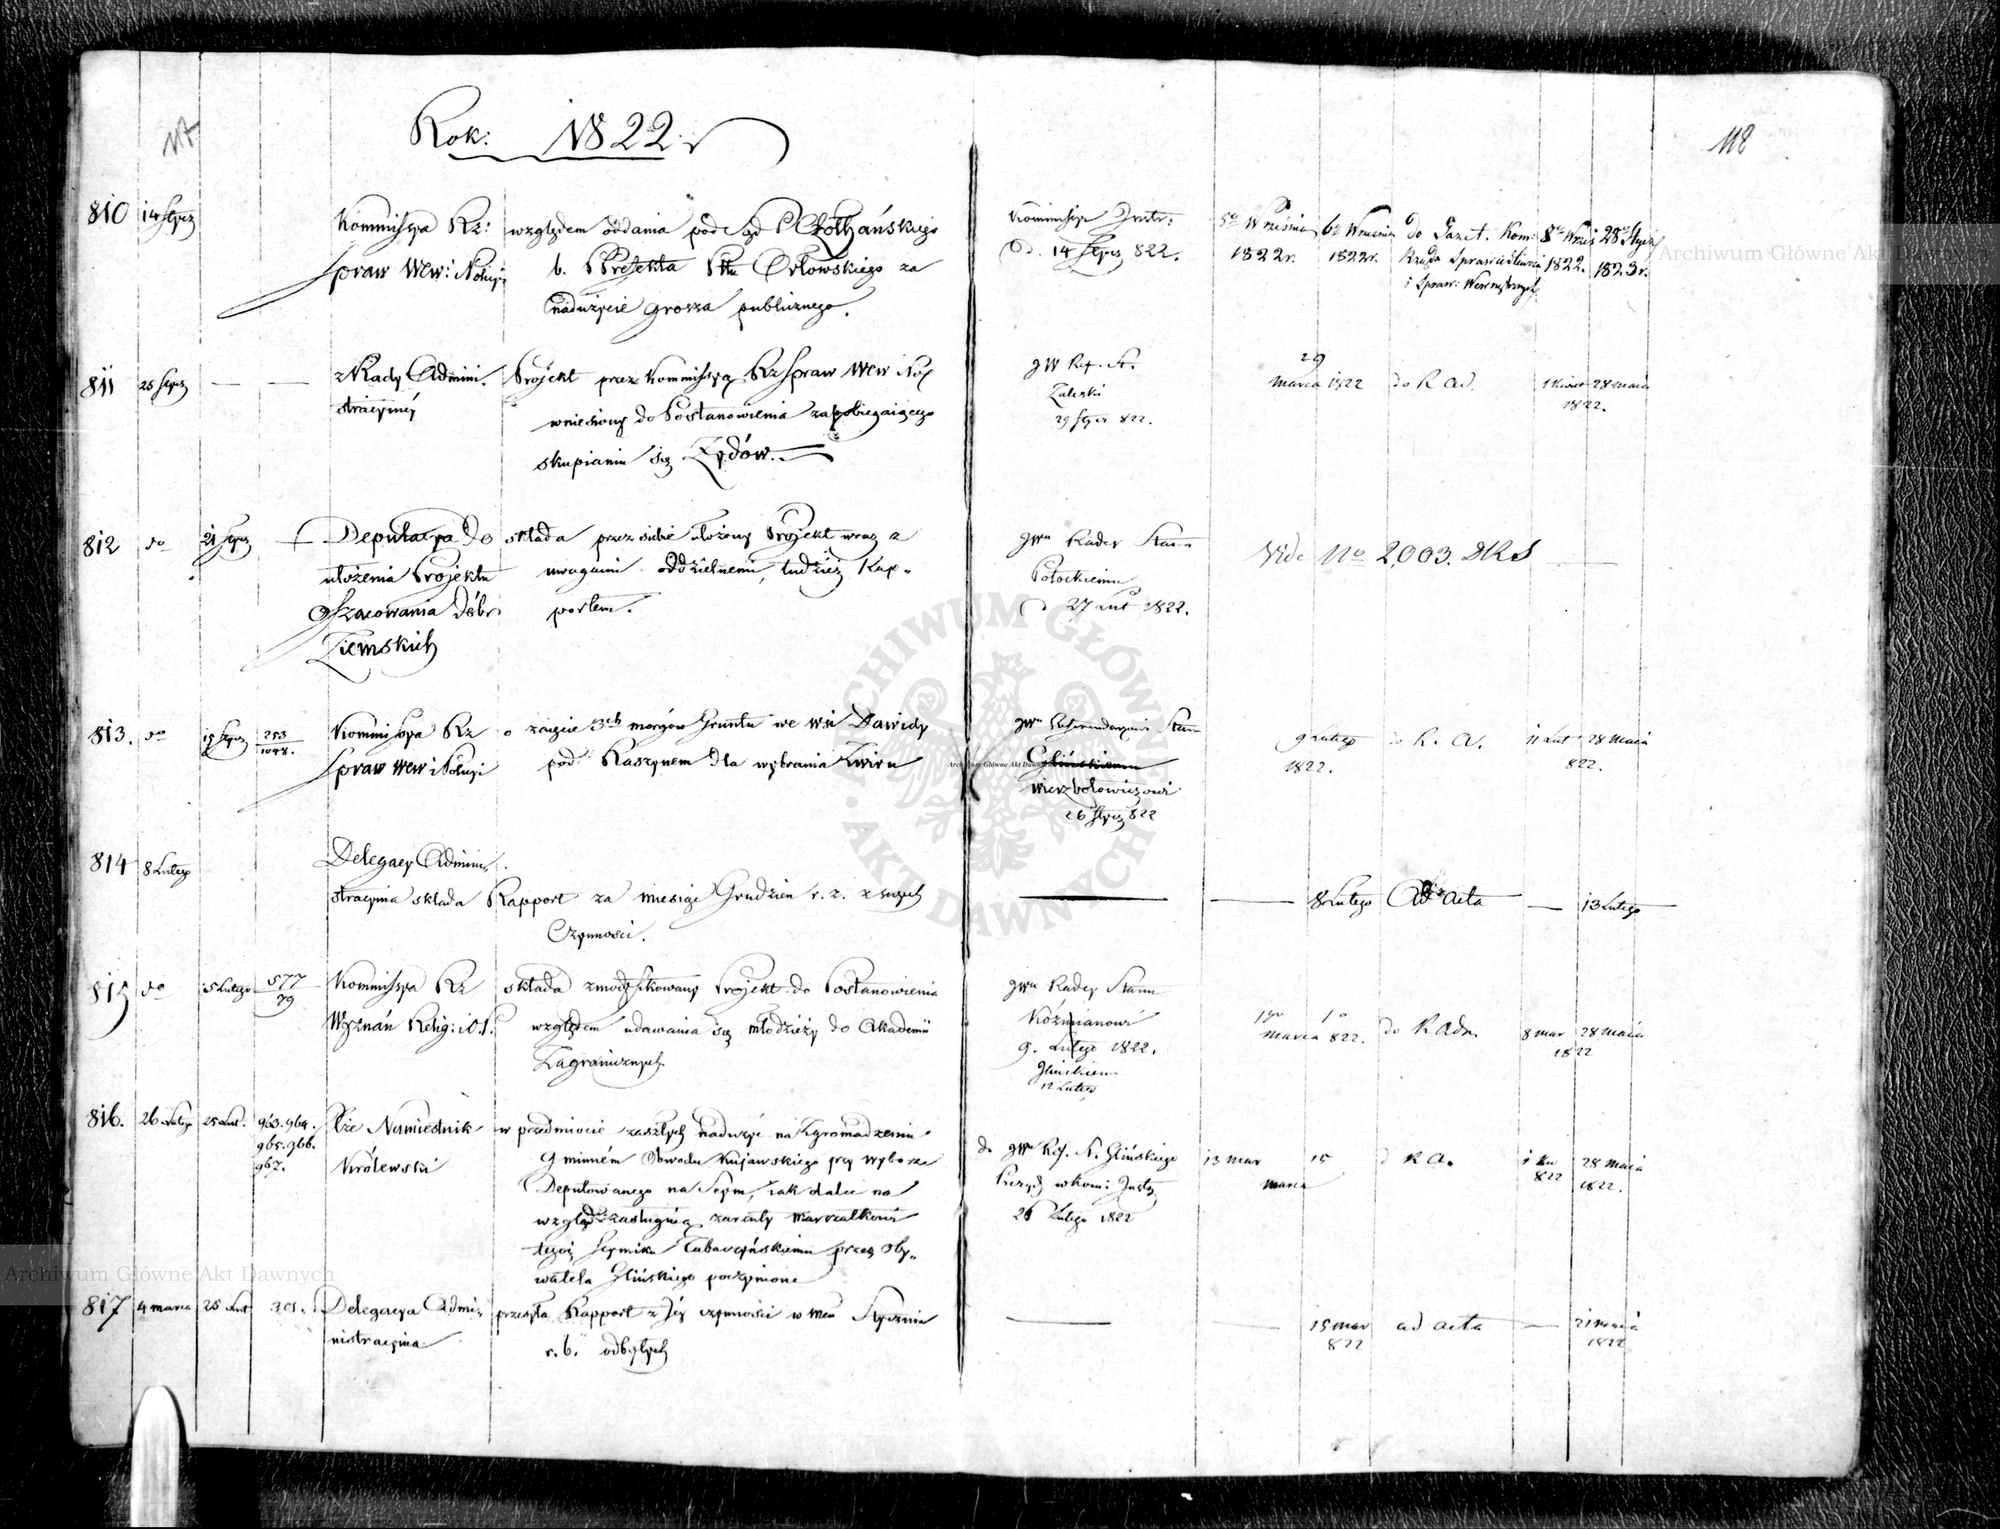 117
Rok: 1822 r
118
810 14 Stycz Kommissya Rz: względem oddania pod Sąd
Spraw Wew: i Policyi b. Prefekta Ptu Orłowskiego za
nadużycie grosza publicznego.
Kommissyi Instr:
d. 14 Stycz 822.
5o Września 6o Września do Kom: 8o Wrześ 28o Stycz
1822 r. 1822 r. Rządo Sprawiedliwości 1822. 1823 r.
i Spraw: Wewnętrznych
811 25 Stycz — — z Rady Admini. Projekt przez Kommissyą Rz Spraw Wew i Pol
stracyinéy wniesiony do Postanowienia zapobiegaiącego
skupianiu się Żydów. —
JW Ref. St.
Zaleski
29 Stycz 822.
29
marca 1822 do R Ad. 1 Kwiet 28 maia
1822.
812 do 21 Stycz — Deputacya do składa przez siebie ułożony Projekt wraz z
ułożenia Projektu uwagami oddzielnemi, tudzież Rap-
Oszacowania Dóbr portem.
Ziemskich
JWu Radcy Stanu
Potockiemu
d 27 Lut 1822.
Vide No 2,003. DRS —
813. do 19 Stycz 253/1048. Kommissya Rz o zaięcie 3ch morgów Gruntu we wsi Dawidy
Spraw Wew i Policyi pod Raszynem dla wybrania Żwiru
JWu Referendarzowi Stanu
Glińskiemu
Wierzbołowiczowi
26 Stycz 822
9 Lutego do R. A. 11 Lut 28 Maia
1822. 822.
814 8 Lutego Delegacy Admini
stracyina składa Rapport za miesiąc Grudzień r. z. z swych
Czynności.
— — 8 Lutego Ad acta — 13 Lutego
815 do 5 Lutego 577/79 Kommissya Rz składa zmodyfikowany Projekt do Postanowienia
Wyznań Relig: i O. P. względem udawania się młodzieży do Akademii
Zagranicznych
JWu Radcy Stanu
Koźmianowi
9. Lutego 1822.
Glińskiemu
12 Lutego
marca 822. do R Adm 8 mar 28 maia
1822
816. 26 Lutego 25 Lut. 963. 964. Xże Namiestnik w przedmiocie zaszłych nadużyć na Zgromadzeniu
965. 966. Królewski Gminném Obwodu Kujawskiego przy wyborze
967. Deputowanego na Seym, iak dalece na
wzgląd zasługuią zarzuty Marszałkowi
tegoż Seymiku Tabaczyńskiemu przez Oby-
watela Glińskiego poczynione
do JWu Ref. S. Glińskiego
Prezyd w Kom: Justy
26 Lutego 1822
13 mar 15 d R A. 1 Kw 28 maia
marca 822 1822.
817 4 marca 25 Lut 301. Delegacya Admi- przesyła Rapport z Jéy czynności w Mcu Styczniu
nistracyina r. b. odbytych
— — 15 mar ad acta — 21 marca
822 1822
Archiwum Główne Akt Dawnych
Archiwum Główne Akt Dawnych
Archiwum Główne Akt Dawnych
ARCHIWUM GŁÓWNE
AKT DAWNYCH